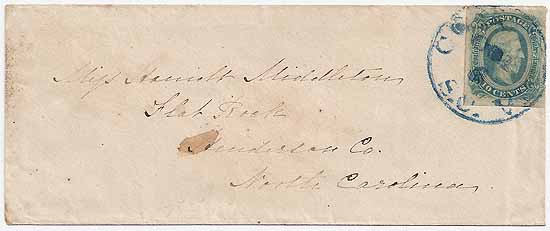 Miss Harriott Middleton
Flat Rock
Henderson Co.
North Carolina
POSTAGE
CENTS
S.C.